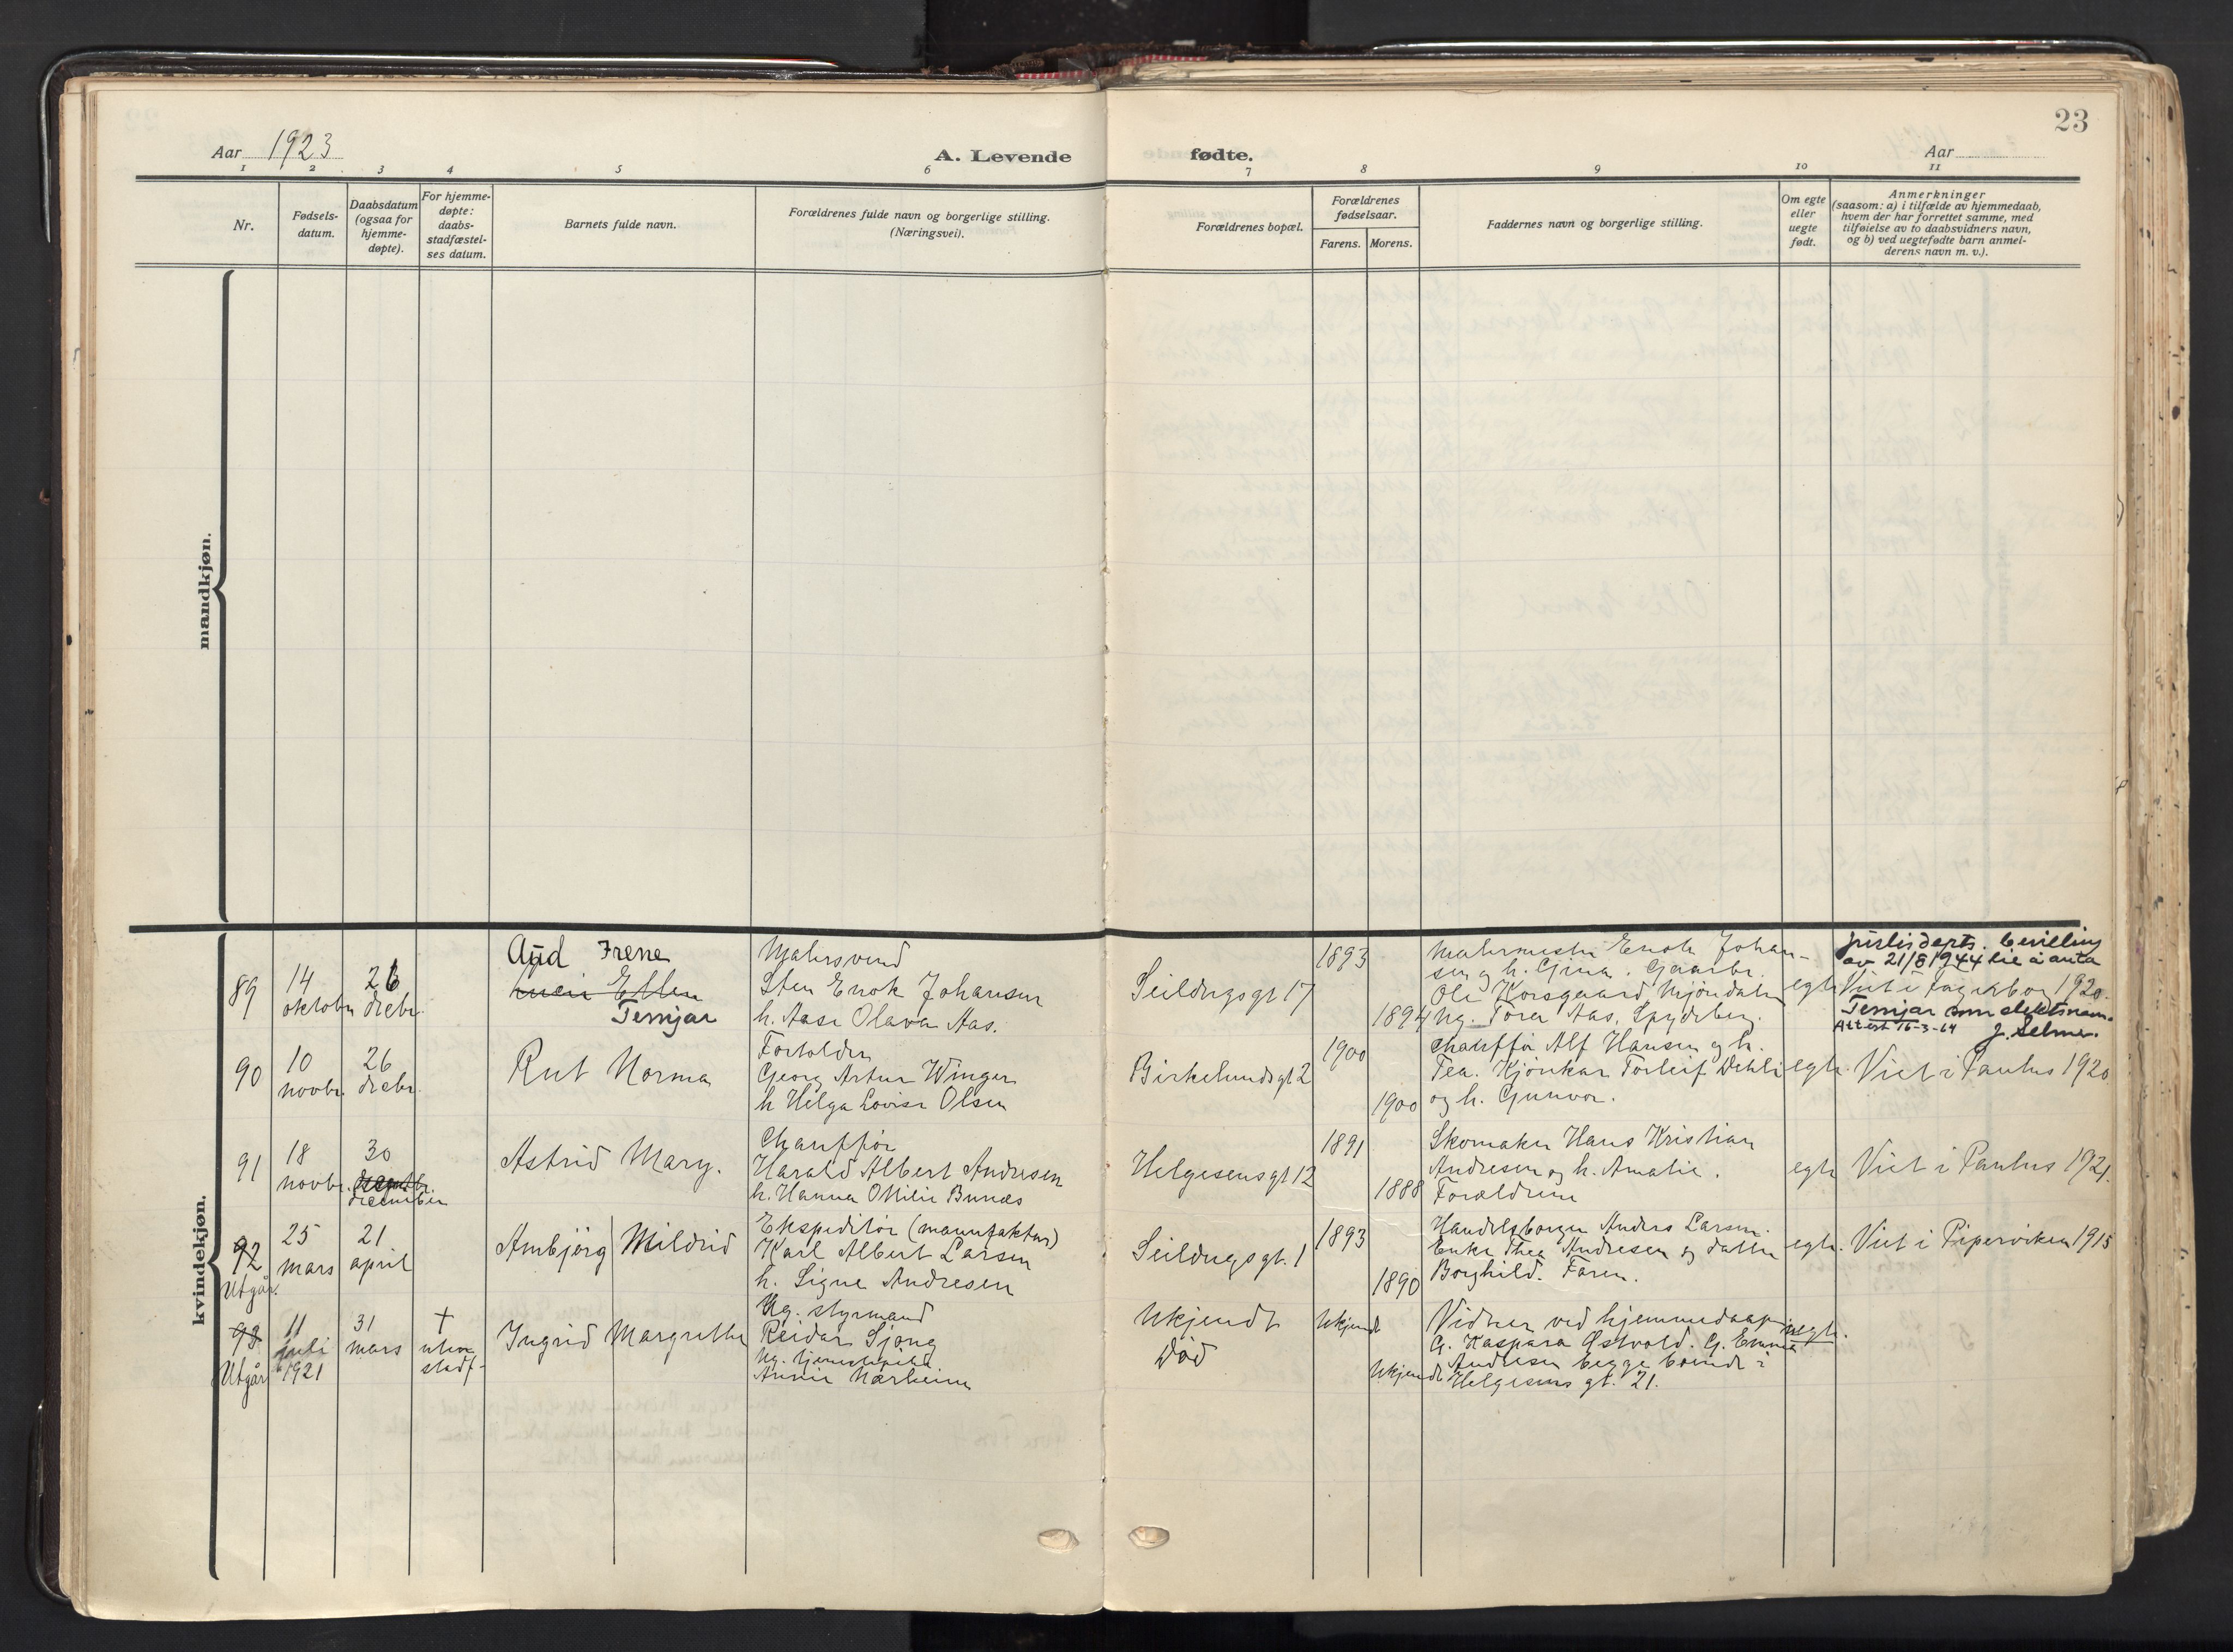 23
Aar 1923
A. Levende
fødte.
Aar
1 2 3 4 5 6 7 8 9 10 11
Nr.
Fødsels-
datum.
Daabsdatum
(ogsaa for
hjemme-
døpte).
For hjemme-
døpte:
daabs-
stadfæstel-
ses datum.
Barnets fulde navn.
Forældrenes fulde navn og borgerlige stilling.
(Næringsvei).
Forældrenes bopæl.
Forældrenes
fødselsaar.
Farens. Morens.
Faddernes navn og borgerlige stilling.
Om egte
eller
uegte
født.
Anmerkninger
(saasom: a) i tilfælde av hjemmedaab,
hvem der har forrettet samme, med
tilføielse av to daabsvidners navn,
og b) ved uegtefødte barn anmel-
derens navn m. v.).
mandkjøn.
kvindekjøn.
89
14
oktobr
26
decbr.
Aud Irene
Ellen
Temjar
Malersvend
Sten Enok Johansen
h. Aase Olava Aas.
Seildugsgt 17
1893
1894
Malermester Enok Johan-
sen og h. Gina. Gaardbr.
Ole Korsgaard Mjöndalen
Ug. Tora Aas, Spydeberg.
egte
justisdepts. bevilling
av 21/8 1944 til å anta
Viet i Fagerborg 1920.
Temjar som slektsnavn.
Attest 16-3-64
J. Selmer.
90
10
novbr.
26
decbr.
Rut Norma
Fortolder
Georg Artur Winger
h Helga Lovise Olsen
Birkelundsgt 2
1900
1900
Chauffør Alf Hansen og h.
Tea. Torleif Dehli
og h. Gunvor.
egte.
Viet i Paulus 1920
91
18
novbr.
30
december
Astrid Mary.
Chauffør
Harald Albert Andresen
h. Hanna Otilie Bunæs
Helgesensgt 12
1891
1888
Skomaker Hans Kristian
Andresen og h. Amalie.
Forældrene
egte
Viet i Paulus 1921.
92
Utgår.
25
mars
21
april
Arnbjörg Mildrid
Ekspeditör (manufaktur)
Karl Albert Larsen
h. Signe Andresen
Seildugsgt. 1
1893
1890
Handelsborger Anders Larsen.
Enke Thea Andresen og datter
Borghild. Faren.
egte.
Viet i Piperviken 1915
93
Utgår
11
juli
1921
31
mars
†
uten
stadf-
Ingrid Margrethe
Ug. styrmand
Reidar Sjong
Ug. tjenestepike
Annie Nærheim
Ukjendt
Död
Ukjendt
Ukjendt
Vidner ved hjemmedaapen
G. Kaspara Østvold. G. Emma
Andresen begge boende i
Helgesens gt. 21.
uegte.